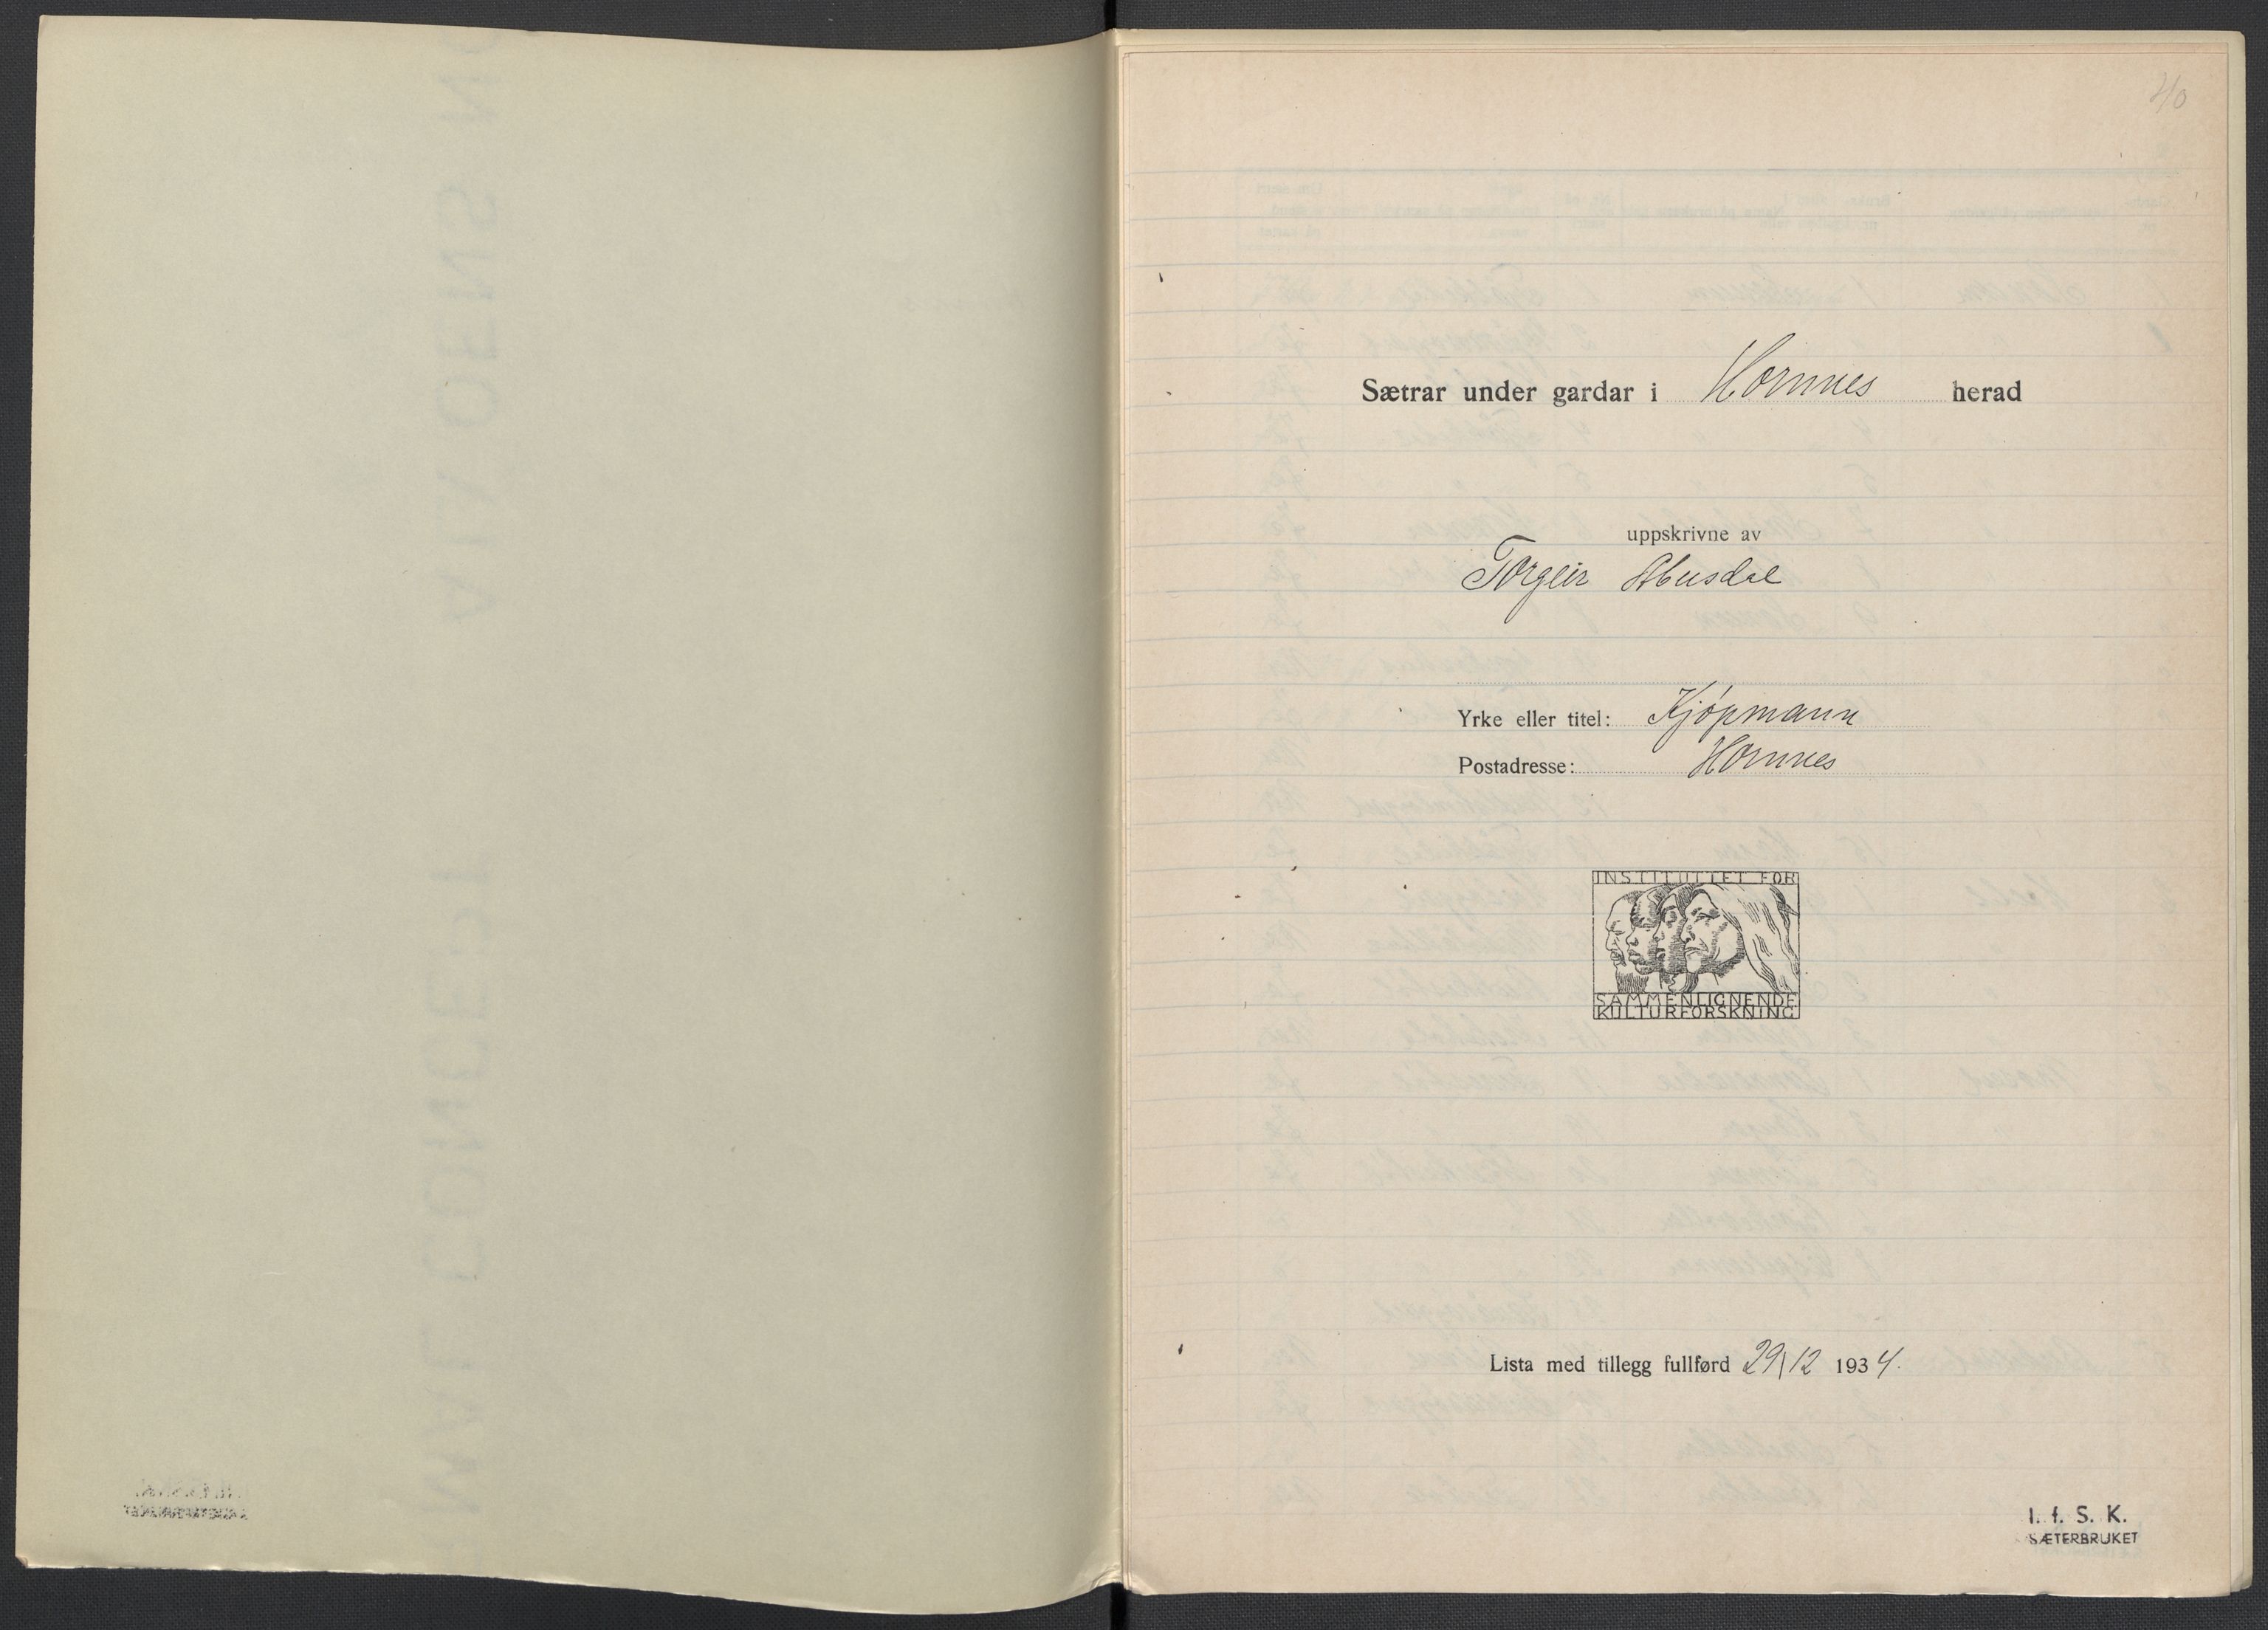 40
Sætrar under gardar i Hornnes herad
uppskrivne av
Torgeir Abusdal
Yrke eller titel: Kjöpmann
Postadresse: Hornnes
INSTITUTTET FOR
SAMMENLIGNENDE
KULTURFORSKNING
Lista med tillegg fullførd 29/12 1934.
I. f. S. K.
SÆTERBRUKET